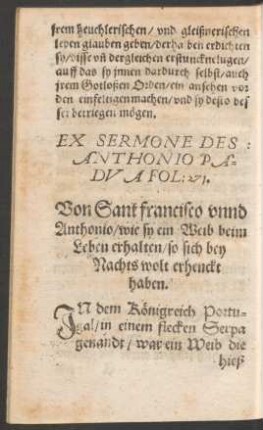 jrem heuchlerischen/ vnd gleißnerischen
leben glauben geben/ derhalben erdichten
sy/ disse vñ dergleichen erstunckne lugen/
auff das sy jnnen dardurch selbst/ auch
jrem Gotlosen Orden/ ein ansehen vor
den einfeltigen machen/ vnd sy desto bes
ser betriegen mögen.
EX SERMONE DES :
ANTHONIO PA-
DVA FOL: 271.
Von Sant francisco vnnd
Anthonio/ wie sy ein Weib beim
Leben erhalten/ so sich bey
Nachts wolt erhenckt
haben.
IN dem Königreich Portu-
gal/ in einem flecken Serpa
genandt/ war ein Weib die
hieß